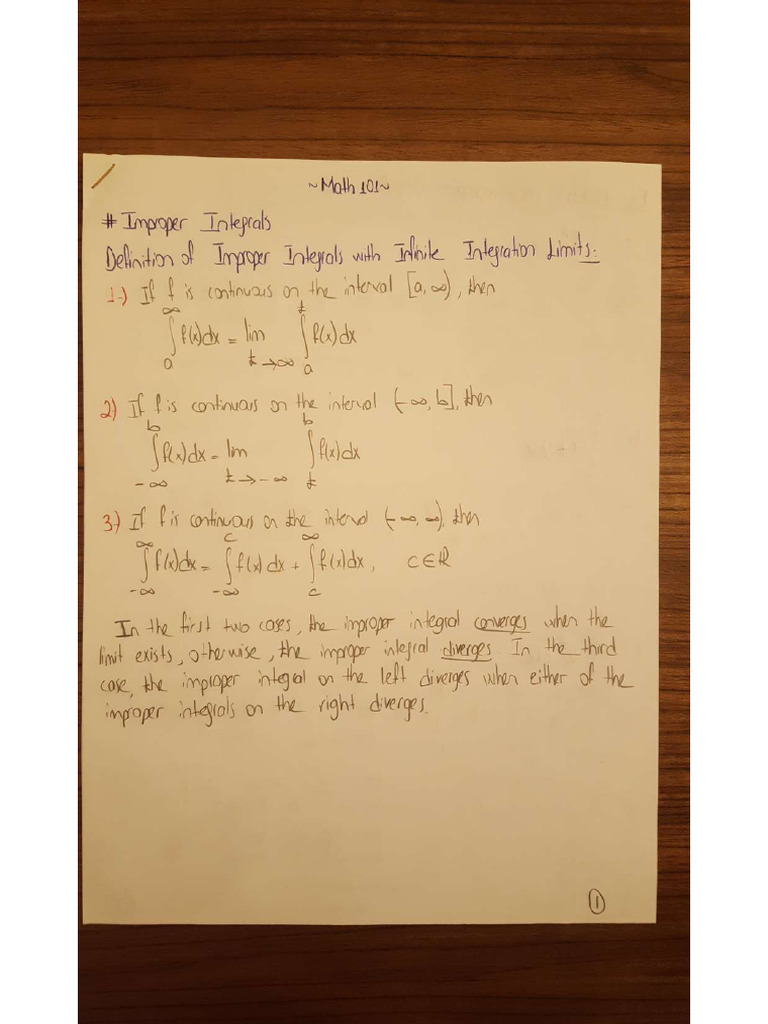 ~Math 101~
# Improper Integrals
Definition of Improper Integrals with Infinite Integration Limits:
1-) If f is continuous on the interval [a, ∞), then
∫_a^∞ f(x)dx = lim_{t→∞} ∫_a^t f(x)dx
2) If f is continuous on the interval (-∞, b], then
∫_{-∞}^b f(x)dx = lim_{t→-∞} ∫_t^b f(x)dx
3-) If f is continuous on the interval (-∞, ∞), then
∫_{-∞}^∞ f(x)dx = ∫_{-∞}^c f(x)dx + ∫_c^∞ f(x)dx, c∈ℝ
In the first two cases, the improper integral converges when the
limit exists, otherwise, the improper integral diverges. In the third
case, the improper integral on the left diverges when either of the
improper integrals on the right diverges.
1